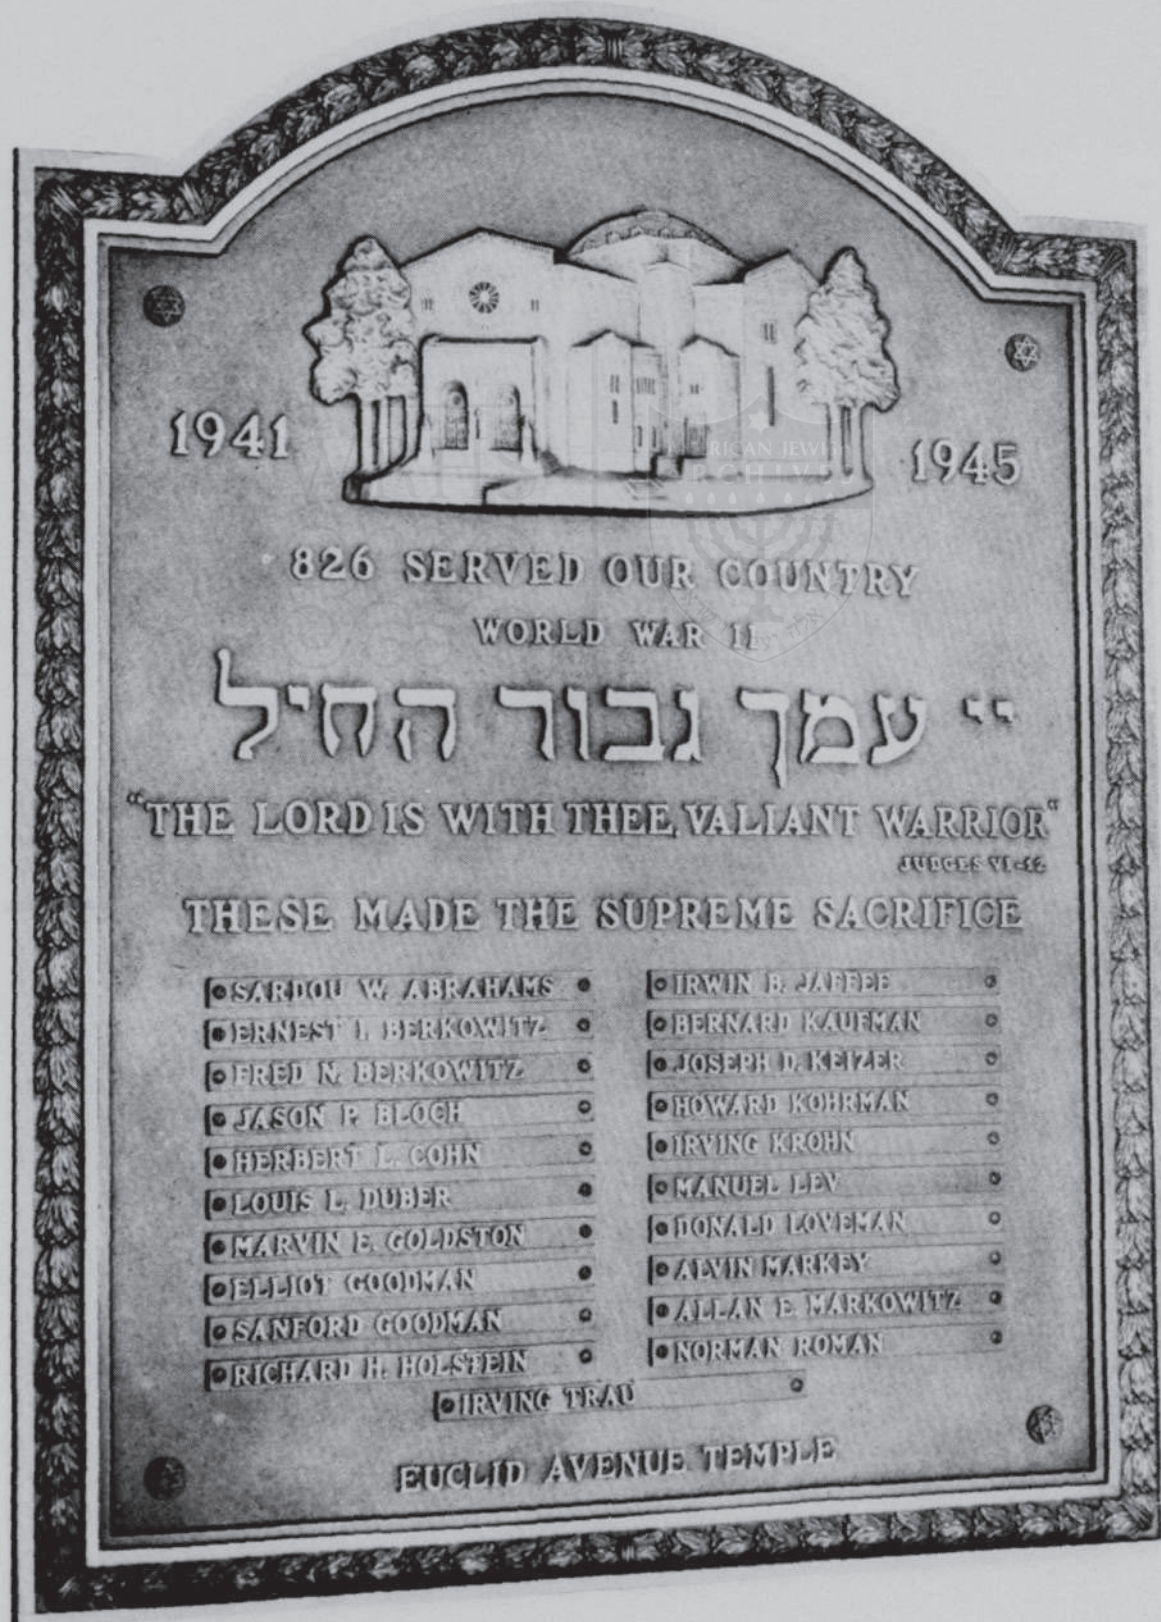 1941
1945
826 SERVED OUR COUNTRY
WORLD WAR II
יי עמך גבור החיל
"THE LORD IS WITH THEE, VALIANT WARRIOR"
JUDGES VI-12
THESE MADE THE SUPREME SACRIFICE
SARDOU W. ABRAHAMS
ERNEST I. BERKOWITZ
FRED N. BERKOWITZ
JASON P. BLOCH
HERBERT L. COHN
LOUIS L. DUBER
MARVIN E. GOLDSTON
ELLIOT GOODMAN
SANFORD GOODMAN
RICHARD H. HOLSTEIN
IRWIN B. JAFFEE
BERNARD KAUFMAN
JOSEPH D. KEIZER
HOWARD KOHRMAN
IRVING KROHN
MANUEL LEV
DONALD LOVEMAN
ALVIN MARKEY
ALLAN E. MARKOWITZ
NORMAN ROMAN
IRVING TRAU
EUCLID AVENUE TEMPLE